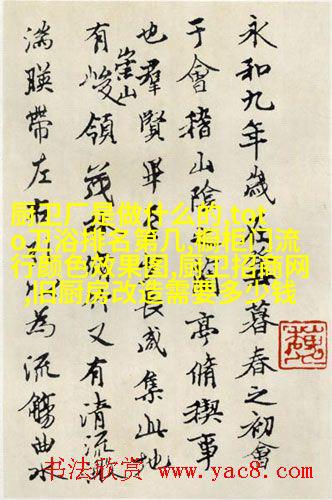 永和九年歲在暮春之初會
于會稽山陰蘭亭脩稧事
也羣賢畢長咸集此地
有崇山峻領茂又有清流激
湍暎帶左右為流觴曲水
厨卫厂是做什么的,tot
o卫浴排名第几,橱柜门流
行颜色效果图,厨卫招商网
,旧厨房改造需要多少钱
书法欣赏 www.yac8.com